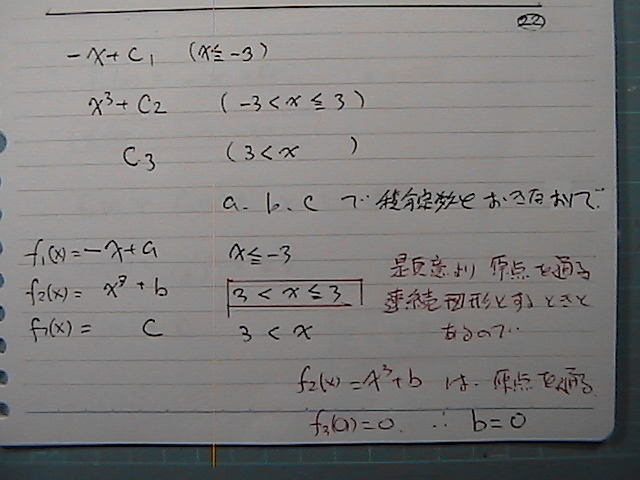 22
-x+C₁ (x≦-3)
x³+C₂ (-3<x≦3)
C₃ (3<x )
a. b. c で 積分定数を おきなおして
f₁(x)=-x+a x≦-3
f₂(x)= x³+b 3<x≦3
f₃(x)= c 3<x
題意より 原点を通る
連続図形とするときと
あるので
f₂(x)=x³+b は. 原点を通る.
f₃(0)=0. ∴ b=0